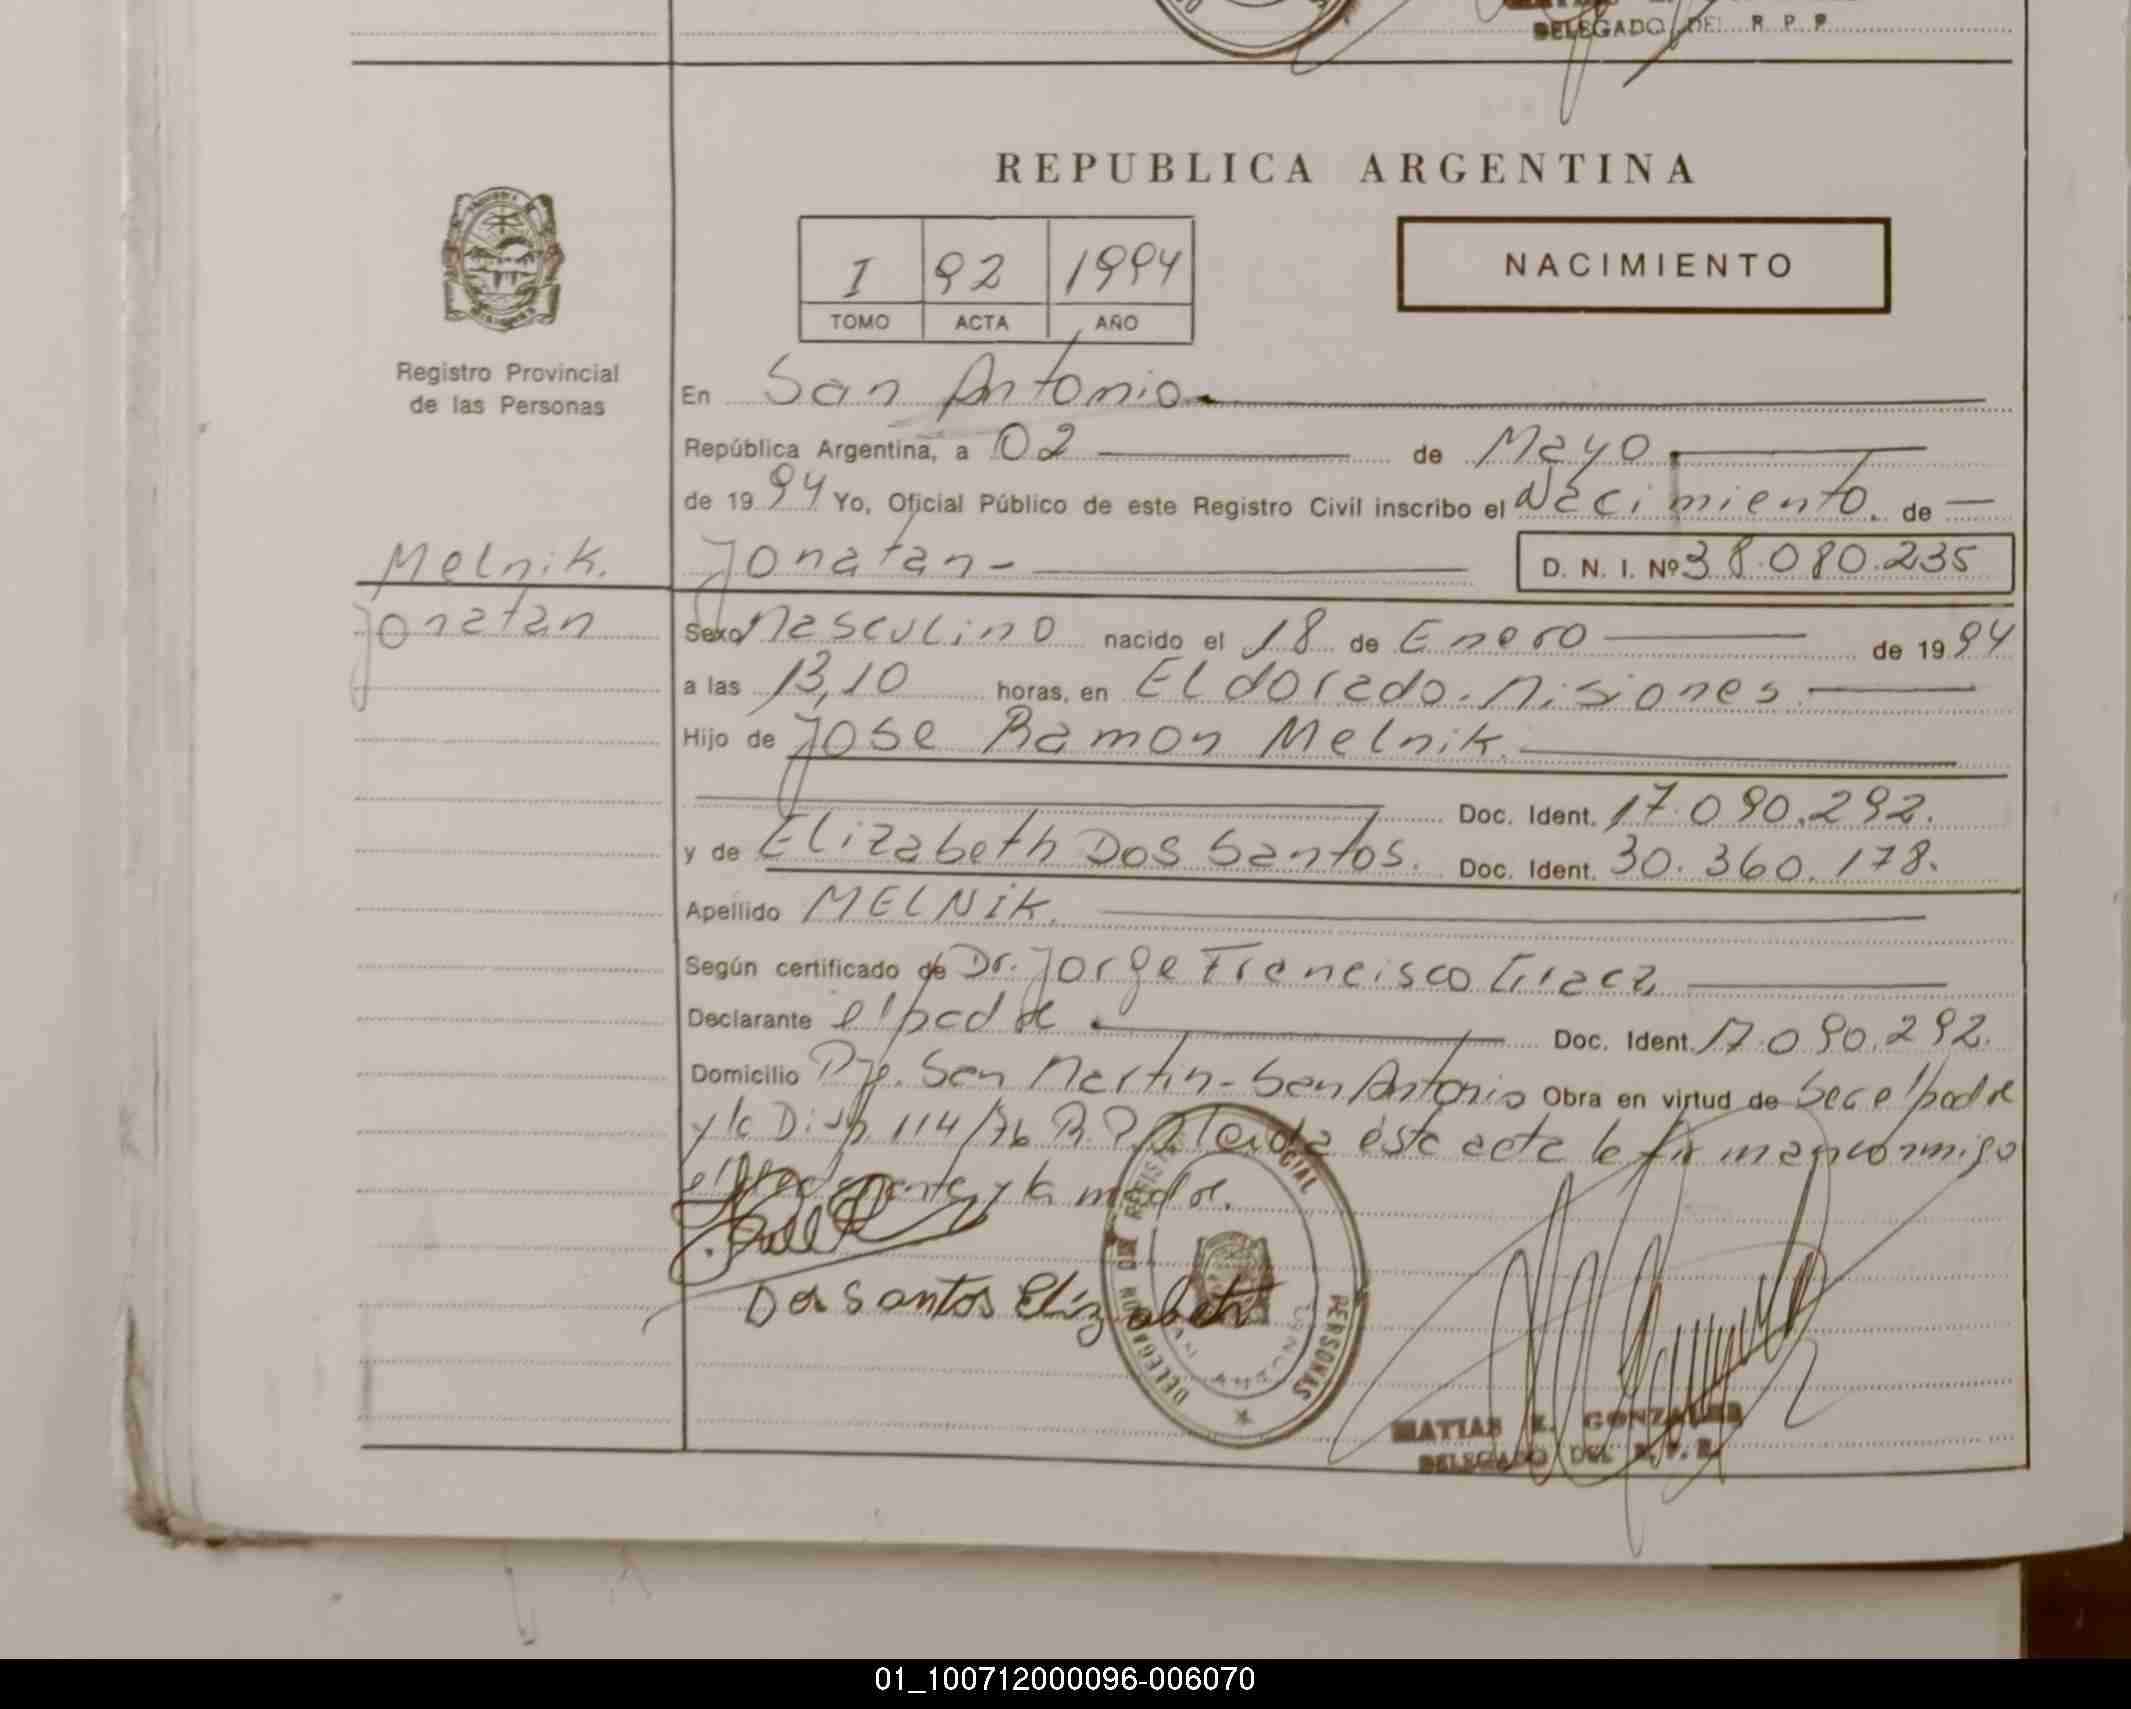 DELEGADO DEL R. P. P.
REPUBLICA ARGENTINA
I 92 1994
TOMO ACTA AÑO
NACIMIENTO
Registro Provincial
de las Personas
En San Antonio
República Argentina, a 02 de Mayo
de 1994 Yo, Oficial Público de este Registro Civil inscribo el Nacimiento. de
Melnik.
Jonatan
Jonatan
D. N. I. Nº 38.080.235
Sexo Masculino nacido el 18 de Enero de 1994
a las 13,10 horas, en Eldorado. Misiones.
Hijo de Jose Ramon Melnik.
Doc. Ident. 17.090.292.
y de Elizabeth Dos Santos. Doc. Ident. 30.360.178.
Apellido MELNiK.
Según certificado de Dr. Jorge Francisco
Declarante el padre. Doc. Ident. 17.090.292.
Domicilio Pje. San Martin - San Antonio Obra en virtud de Ser el padre
y la Disp. 114/76 R.P.P. Leida esta acta la firman conmigo
el y la madre.
Dos Santos Elizabeth
DELEGA PERSONAS
MATIAS E. GONZALEZ
DELEGADO DEL R. P. P.
01_100712000096-006070